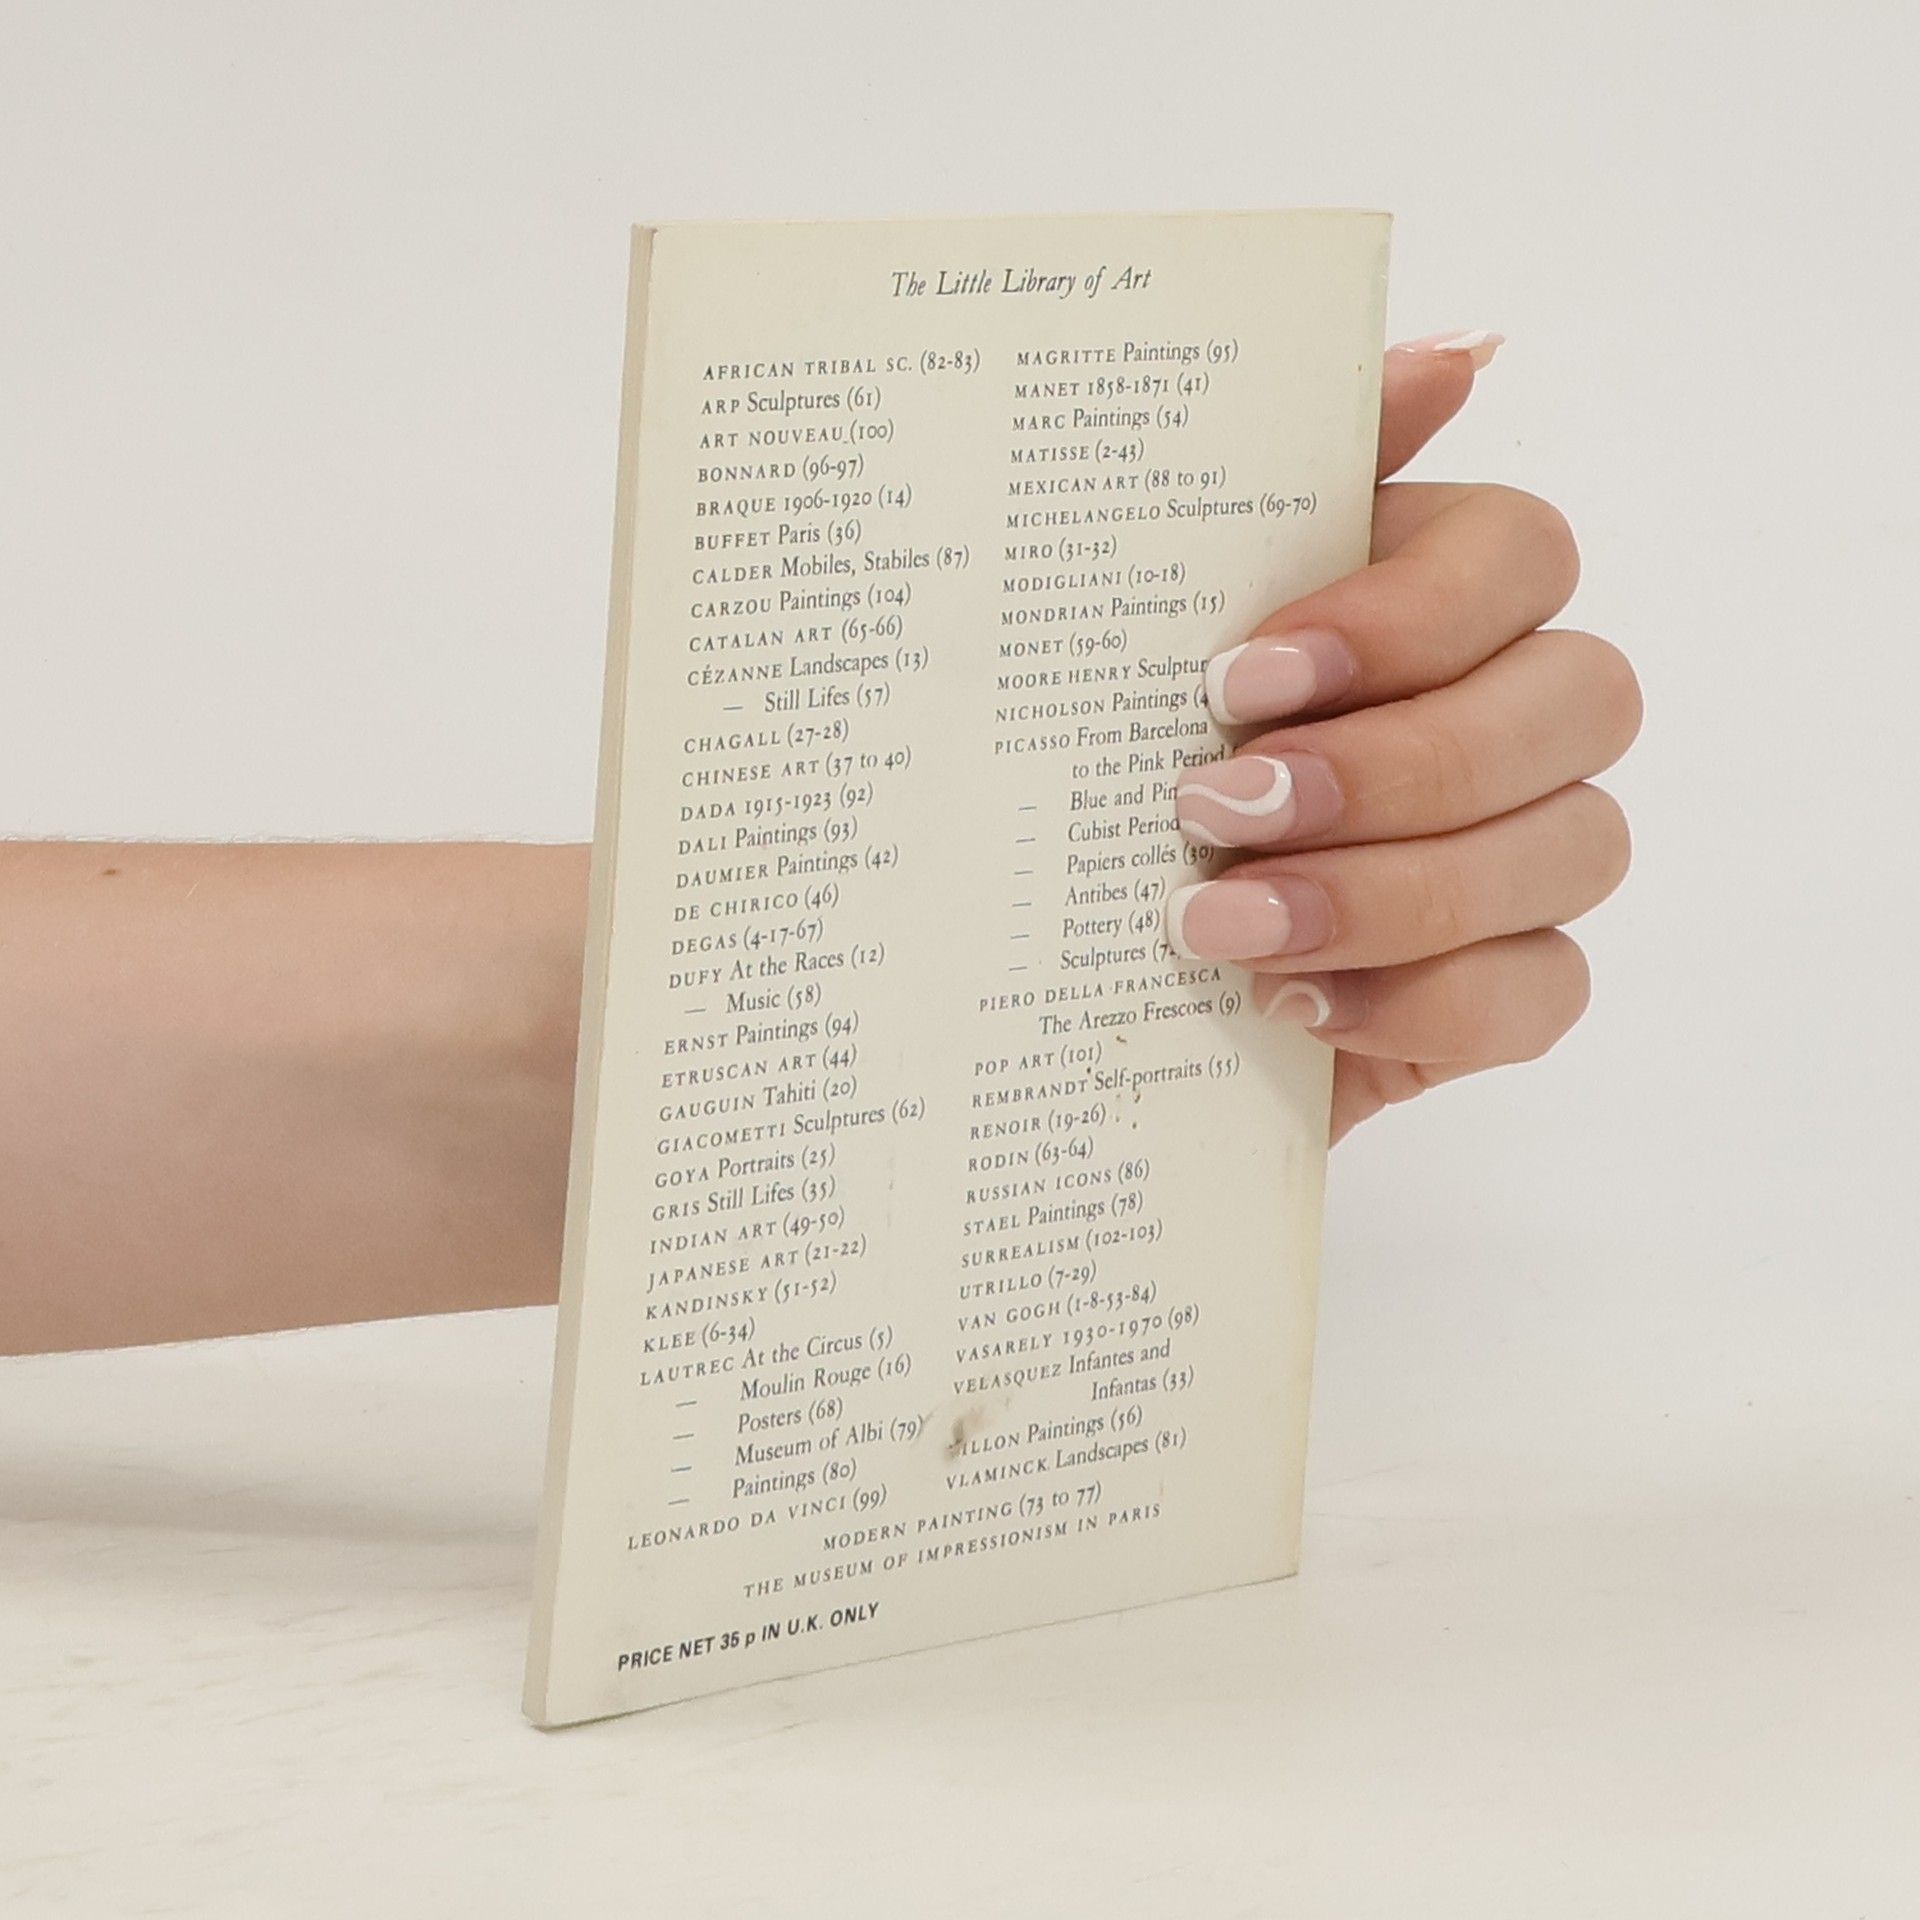 The Little Library of Art
AFRICAN TRIBAL SC. (82-83)
ARP Sculptures (61)
ART NOUVEAU (100)
BONNARD (96-97)
BRAQUE 1906-1920 (14)
BUFFET Paris (36)
CALDER Mobiles, Stabiles (87)
CARZOU Paintings (104)
CATALAN ART (65-66)
CÉZANNE Landscapes (13)
— Still Lifes (57)
CHAGALL (27-28)
CHINESE ART (37 to 40)
DADA 1915-1923 (92)
DALI Paintings (93)
DAUMIER Paintings (42)
DE CHIRICO (46)
DEGAS (4-17-67)
DUFY At the Races (12)
— Music (58)
ERNST Paintings (94)
ETRUSCAN ART (44)
GAUGUIN Tahiti (20)
GIACOMETTI Sculptures (62)
GOYA Portraits (25)
GRIS Still Lifes (35)
INDIAN ART (49-50)
JAPANESE ART (21-22)
KANDINSKY (51-52)
KLEE (6-34)
LAUTREC At the Circus (5)
— Moulin Rouge (16)
— Posters (68)
— Museum of Albi (79)
— Paintings (80)
LEONARDO DA VINCI (99)
MAGRITTE Paintings (95)
MANET 1858-1871 (41)
MARC Paintings (54)
MATISSE (2-43)
MEXICAN ART (88 to 91)
MICHELANGELO Sculptures (69-70)
MIRO (31-32)
MODIGLIANI (10-18)
MONDRIAN Paintings (15)
MONET (59-60)
MOORE HENRY
NICHOLSON Paintings
PICASSO From Barcelona
to the Pink Period
— Blue and
— Cubist Period
— Papiers collés (30)
— Antibes (47)
— Pottery (48)
— Sculptures
PIERO DELLA FRANCESCA
The Arezzo Frescoes (9)
POP ART (101)
REMBRANDT Self-portraits (55)
RENOIR (19-26)
RODIN (63-64)
RUSSIAN ICONS (86)
STAEL Paintings (78)
SURREALISM (102-103)
UTRILLO (7-29)
VAN GOGH (1-8-53-84)
VASARELY 1930-1970 (98)
VELASQUEZ Infantes and
Infantas (33)
Paintings (56)
VLAMINCK Landscapes (81)
MODERN PAINTING (73 to 77)
THE MUSEUM OF IMPRESSIONISM IN PARIS
PRICE NET 35 p IN U.K. ONLY